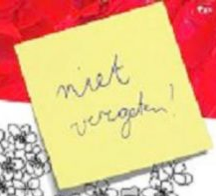 niet
vergeten!